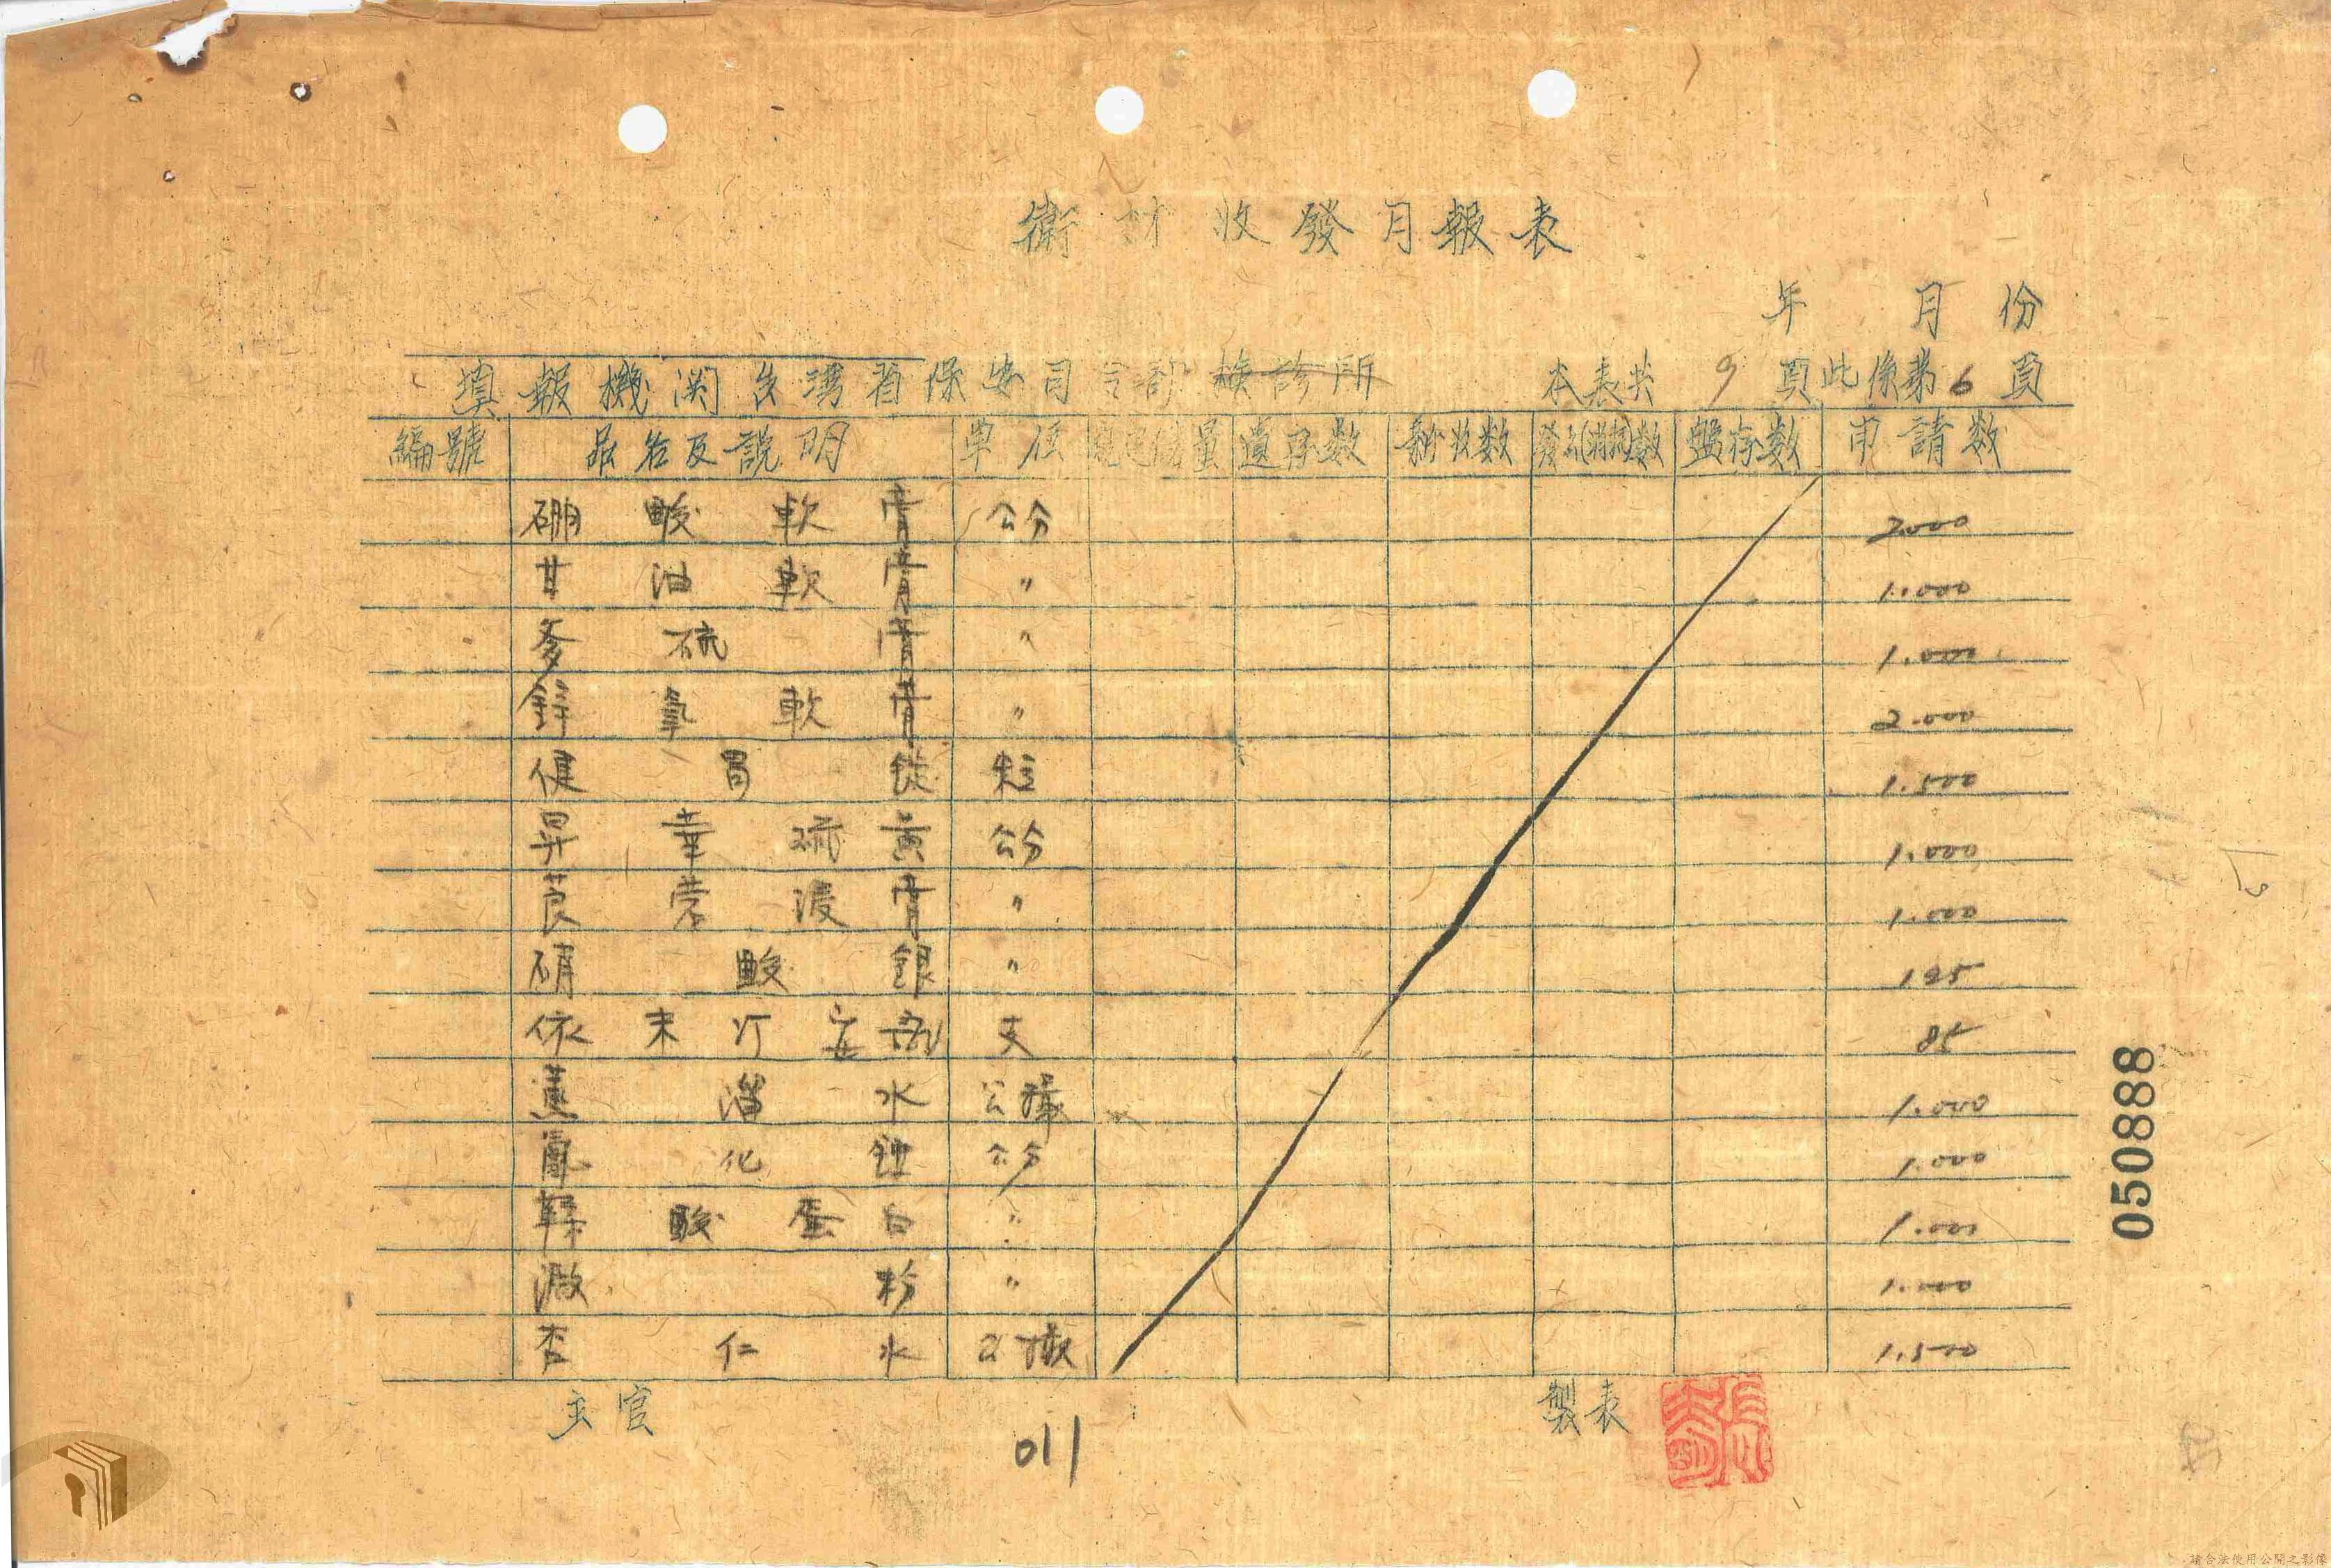 衛材收發月報表
年 月 份
填報機関台湾省保安司令部檢診所 本表共 9 頁此係第 6 頁
編號 品名及說明 單位 規定儲量 遺存数 新收数 發出(消耗)数 盤存数 申請数
硼酸軟膏 公分 2000
甘油軟膏 〃 1.000
爹硫膏 〃 1.000
鋅氧軟膏 〃 2.000
健胃錠 粒 1.500
昇華硫黃 公分 1.000
莨菪浸膏 〃 1.000
硝酸銀 〃 125
依米汀安瓿 支 85
薰溜水 公撮 1.000
氯化鉀 公分 1.000
鞣酸蛋白 〃 1.000
澱粉 〃 1.000
杏仁水 公撮 1.500
主官 製表
011
050888
請合法使用公開之影像